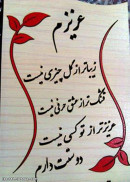 عزیزم
زیباتر از گل چیزی نیست
قشنگ تر از عشق حرفی نیست
عزیزتر از تو کسی نیست
دوستت دارم